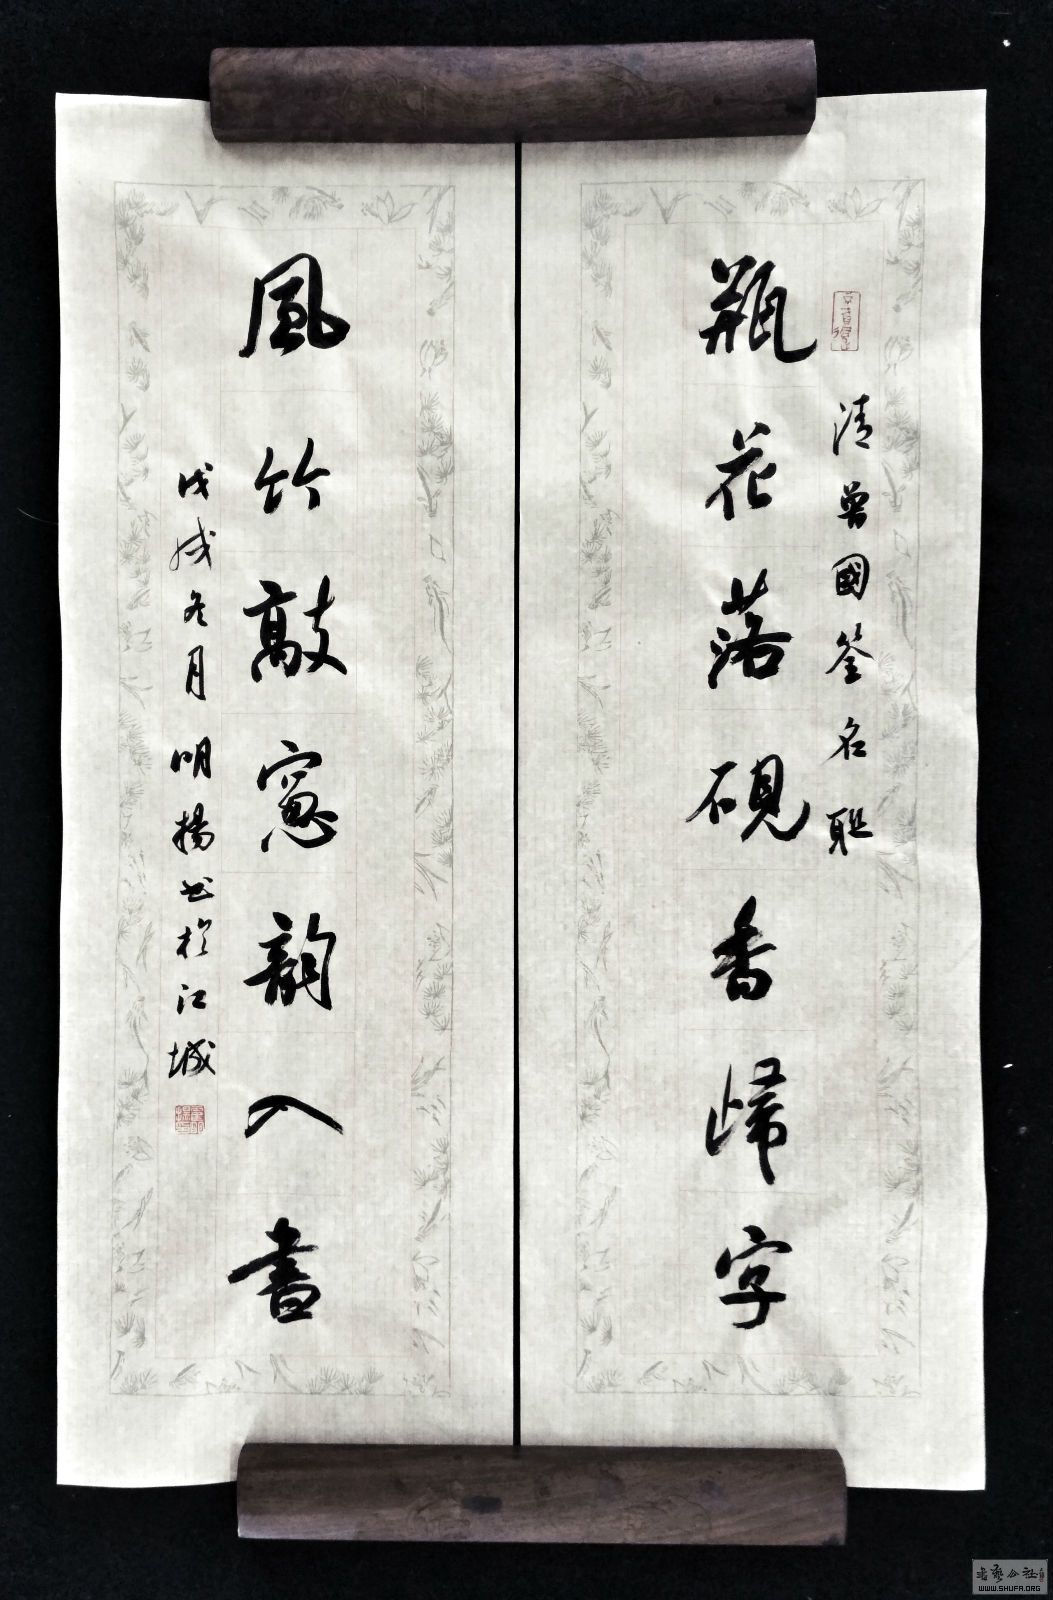 清曾國荃名聯
瓶花落硯香歸字
風竹敲窻韵入書
戊戌冬月 明揚书於江城
书艺公社
WWW.SHUFA.ORG